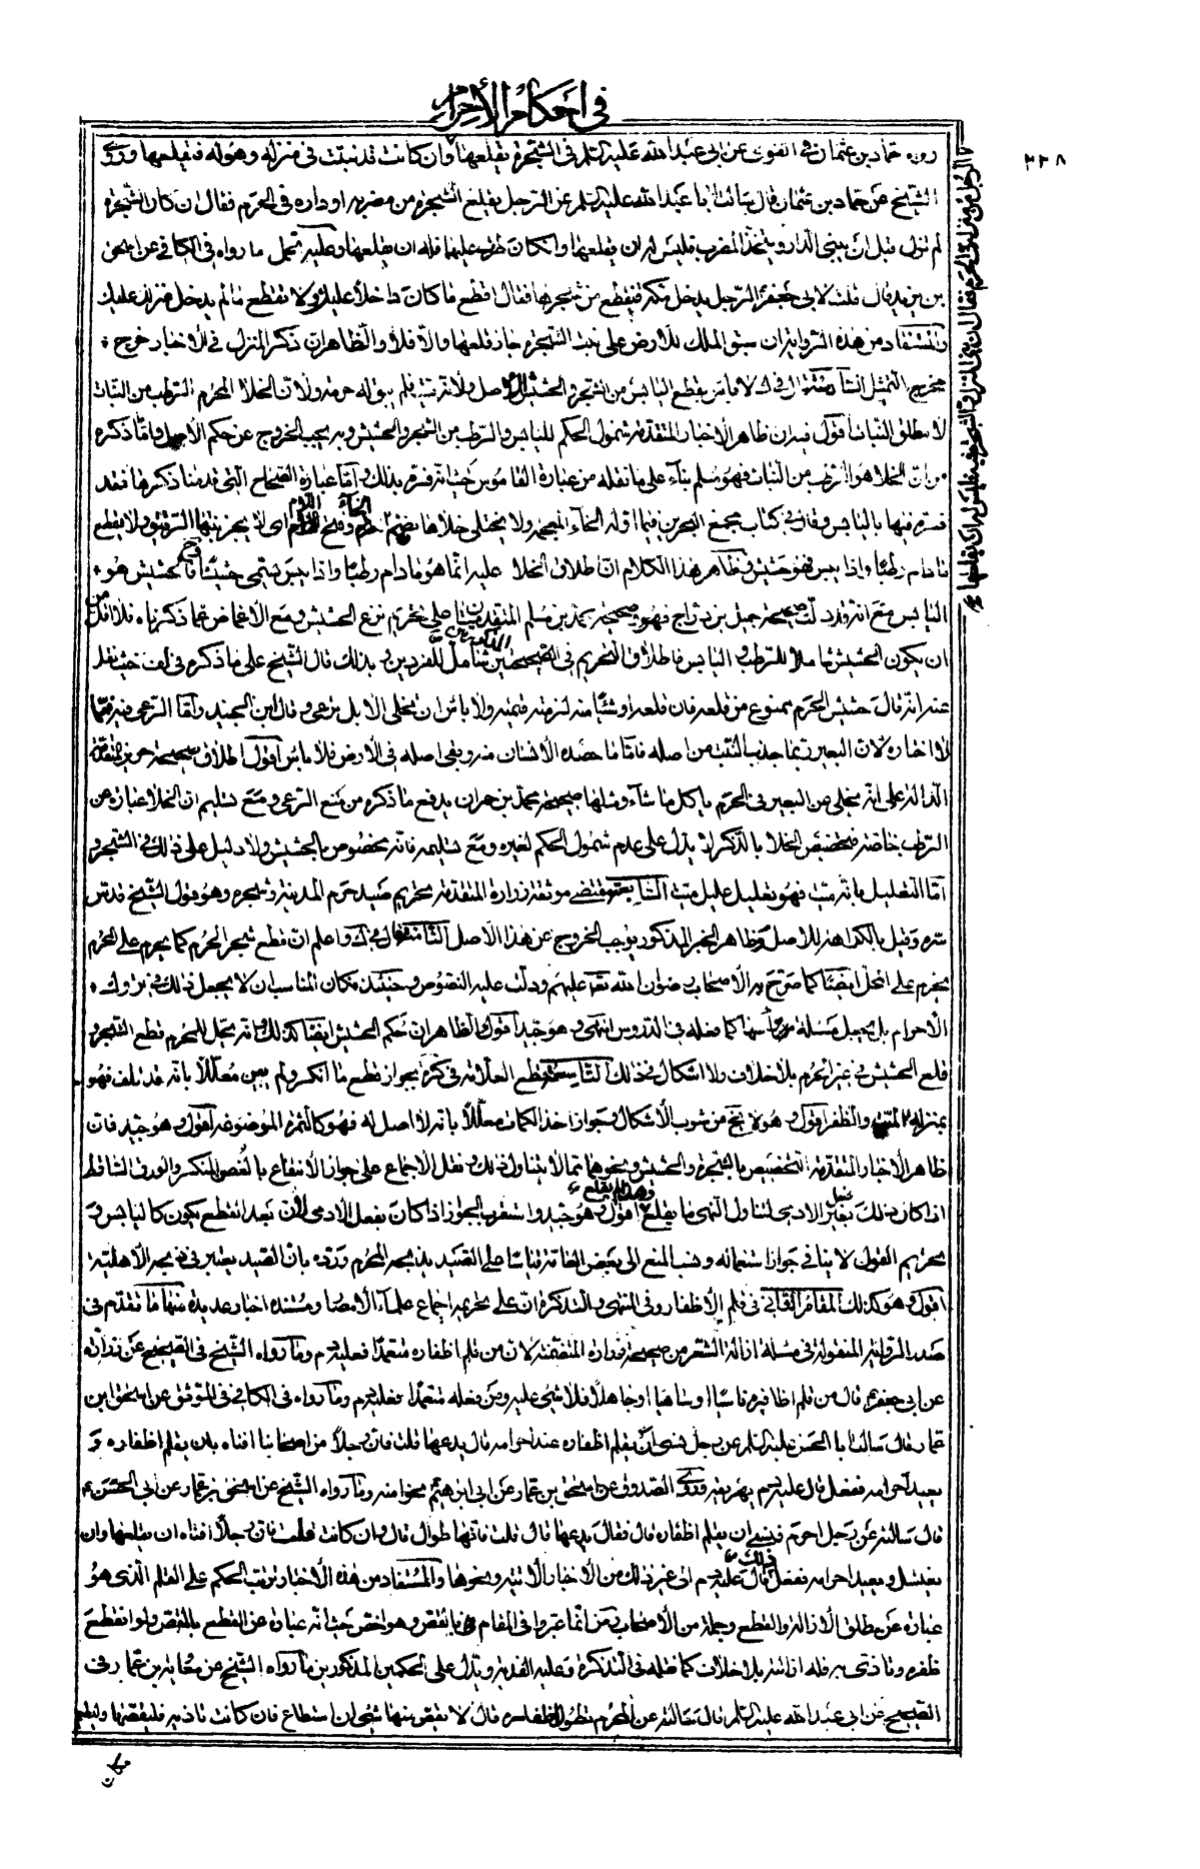 في احكام الأحرام
٢٣٨
رويه حماد بن عثمان في القوى عن ابي عبد الله عليه السلم في الشجرة يقلعها وان كانت قد نبتت في منزله وهو له فليقلعها وروى
الشيخ عن حماد بن عثمان قال سالت ابا عبد الله عليه السلم عن الرجل يقلع الشجرة من مضربه او داره في الحرم فقال ان كان الشجرة
لم تزل قبل ان يبنى الدار ويتخذ المضرب فليس له ان يقلعها وان كان طرت عليها فله ان يقلعها وعليه يحمل ما رواه في الكافي عن اسحق
بن يزيد قال قلت لابي جعفر الرجل يدخل مكة فيقطع من شجرها فقال اقطع ما كان داخلا عليك ولا تقطع ما لم يدخل منزلك عليك
والمستفاد من هذه الرواية ان سبق الملك للارض على نبت الشجرة جاز قلعها والا فلا والظاهر ان ذكر المنزل في الاخبار خرج
مخرج التمثيل السا قال في ك لا باس بقطع اليابس من الشجر والحشيش للاصل ولانه ميت فلم يبق له حرمة ولان الخلا المحرم الرطب من النبات
لا مطلق النبات اقول فيه ان ظاهر الاخبار المتقدمة شمول الحكم لليابس والرطب من الشجر والحشيش وبه يجب الخروج عن حكم الأصل واما ذكره
من ان الخلا هو الرطب من النبات فهو مسلم بناء على ما نقله من عبارة القاموس حيث انه فسره بذلك واما عبارة الصحاح التي قدمنا ذكرها فقد
فسره فيها باليابس وقال في كتاب مجمع البحرين فيما اوله الخاء المعجمة ولا يختلى خلاها بضم وفتح اي لا يجز نبتها الرقيق ولا يقطع
ما دام رطبا واذا يبس فهو حشيش وظاهر هذا الكلام ان اطلاق الخلا عليه انما هو ما دام رطبا واذا يبس يسمى حشيشا فالحشيش هو
اليابس مع انه قد دلت صحيحة جميل بن دراج فهو وصحيحة محمد بن مسلم المتقدمتان على تحريم نزع الحشيش ومع الاغماض عما ذكرناه فلا اقل من
ان يكون الحشيش شاملا للرطب واليابس فاطلاق التحريم في الصحيحين شامل للفردين وبذلك قال الشيخ على ما ذكره في لف حيث نقل
عنه انه قال حشيش الحرم ممنوع من قلعه فان قلعه او شيئا منه لزمته قيمته ولا باس ان يخلى الابل ترعى وقال ابن الجنيد واما الرعى فيه فمما
لا اختاره لان البعير ربما جذب النبت من اصله فاما ما حصده الانسان منه وبقى اصله في الارض فلا باس اقول اطلاق صحيحة حريز المتقدمة
الدالة على انه يخلى من البعير في الحرم ياكل ما شاء ومثلها صحيحة محمد بن حمران يدفع ما ذكره من منع الرعى ومع تسليم ان الخلا عبارة عن
الرطب خاصة فتخصيص الخلا بالذكر لا يدل على عدم شمول الحكم لغيره ومع تسليمه فانه مخصوص بالحشيش ولا دليل على ذلك في الشجر و
اما التعليل بانه ميت فهو تعليل عليل ميت السابع مقتضى موثقة زرارة المتقدمة تحريم صيد حرم المدينة وشجره وهو قول الشيخ قدس
سره وقيل بالكراهة للاصل وظاهر الخبر المذكور يوجب الخروج عن هذا الاصل الثامن قال في ك واعلم ان قطع شجر الحرم كما يحرم على المحرم
يحرم على المحل ايضا كما صرح به الاصحاب رضوان الله عليهم ودلت عليه النصوص وحينئذ فكان المناسب ان لا يجعل ذلك في تروك
الاحرام بل يجعل مسئلة براسها كما فعله في الدروس انتهى وهو جيد اقول والظاهر ان حكم الحشيش ايضا كذلك وانه يحل للمحرم قطع الشجر و
قلع الحشيش في غير الحرم بلا خلاف ولا اشكال في ذلك التاسع قطع العلامة في كرة بجواز قطع ما انكسر ولم يبن معللا بانه قد تلف فهو
بمنزلة الميت والظفر اقول وهو لا يخ من شوب الأشكال وبجواز اخذ الكمات معللا بانه لا اصل له فهو كالثمرة الموضوعة اقول وهو جيد فان
ظاهر الأخبار المتقدمة التخصيص بالشجرة والحشيش ونحوهما مما لا يتناول ذلك ونقل الاجماع على جواز الانتفاع بالغصن المنكسر والورق الساقط
اذا كان ذلك بغير فعل الادمي لتناول النهى ما يقلع وهذا لم يقلع اقول وهو جيد واستقرب الجواز اذا كان بفعل الادمي لانه بعد القطع يكون كاليابس و
تحريم الفعل لا ينافي جواز استعماله ونسب المنع الى بعض العامة قياسا على الصيد يذبحه المحرم ورده بان الصيد يعتبر في ذبحه الأهلية
اقول وهو كذلك المقام الثاني في قلم الاظفار وفي المنتهى والتذكرة ان على تحريمه اجماع علماء الأمصار ومستنده اخبار عديدة منها ما تقدم في
صدر الرواية المنقولة في مسئلة ازالة الشعر من صحيحة زرارة المتضمنة لان من قلم اظفاره متعمدا فعليه دم وما رواه الشيخ في الصحيح عن زرارة
عن ابي جعفر قال من قلم اظافيره ناسيا او ساهيا او جاهلا فلا شيء عليه ومن فعله متعمدا فعليه دم وما رواه في الكافي في الموثق عن اسحق بن
عمار قال سالت ابا الحسن عليه السلم عن رجل نسى ان يقلم اظفاره عند احرامه قال يدعها قلت فان رجلا من اصحابنا افتاه بان يقلم اظفاره و
يعيد احرامه ففعل قال عليه دم يهريقه وروى الصدوق عن اسحق بن عمار عن ابي ابراهيم نحوا منه وما رواه الشيخ عن اسحق بن عمار عن ابي الحسن
قال سالته عن رجل احرم فنسى ان يقلم اظفاره قال فقال يدعها قال قلت فانها طوال قال وان كانت قلت فان رجلا افتاه ان يقلمها وان
يغتسل ويعيد احرامه ففعل قال عليه دم الى غير ذلك من الأخبار الآتية ونحوها والمستفاد من هذه الأخبار ترتب الحكم على القلم الذي هو
عبارة عن مطلق الازالة والقطع وجملة من الاصحاب انما عبروا في المقام بالقص وهو اخص حيث انه عبارة عن القطع بالمقص ولو انقطع
ظفره وتاذى به فله ازالته بلا خلاف كما نقله في التذكرة وعليه الفدية ويدل على الحكمين المذكورين ما رواه الشيخ عن معاوية بن عمار في
الصحيح عن ابي عبد الله عليه السلم قال سالته عن المحرم تطول اظفاره قال لا يقص منها شيئا ان استطاع فان كانت تاذيه فليقصها وليطعم
الرجل من منزله في الحرم فقال ان بنى المنزل والشجرة فيه فليس له ان يقلعها
مكان